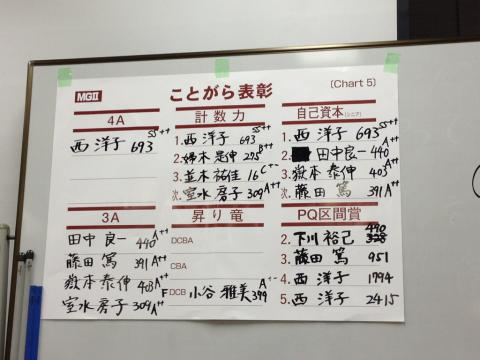 MGII
ことがら表彰
(Chart 5)
4A
西 洋子 693 SS++
計数力
1. 西 洋子 693 SS++
2. 婦木 是伸 275 B++
3. 並木 祐佳 16 C--
次. 室水 房子 309 A++
自己資本(シニア)
1. 西 洋子 693 SS++
2. 田中良一 440 A++
3. 嶽本 泰伸 403 A++
次. 藤田 篤 391 A++
3A
田中 良一 440 A++
藤田 篤 391 A++
嶽本 泰伸 403 A++
室水 房子 309 A++
昇り竜
DCBA
CBA
F DCB 小谷 雅美 399 A+-
PQ区間賞
2. 下川 裕己 490 328
3. 藤田 篤 951
4. 西 洋子 1794
5. 西 洋子 2415